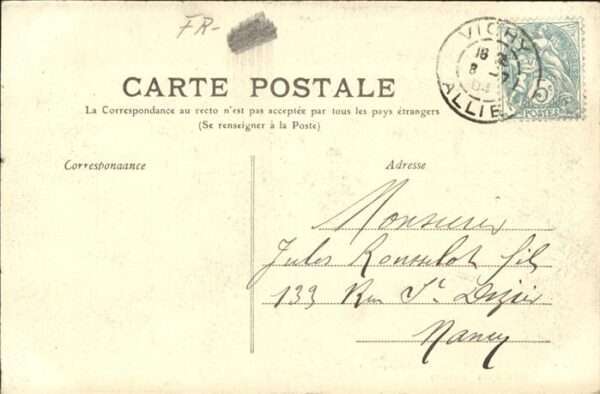 FR-
VICHY
18
8 -7
04
ALLIER
POSTES
CARTE POSTALE
La Correspondance au recto n'est pas acceptée par tous les pays étrangers
(Se renseigner à la Poste)
Correspondance
Adresse
Monsieur
Jules fils
133 Rue St Dizier
Nancy